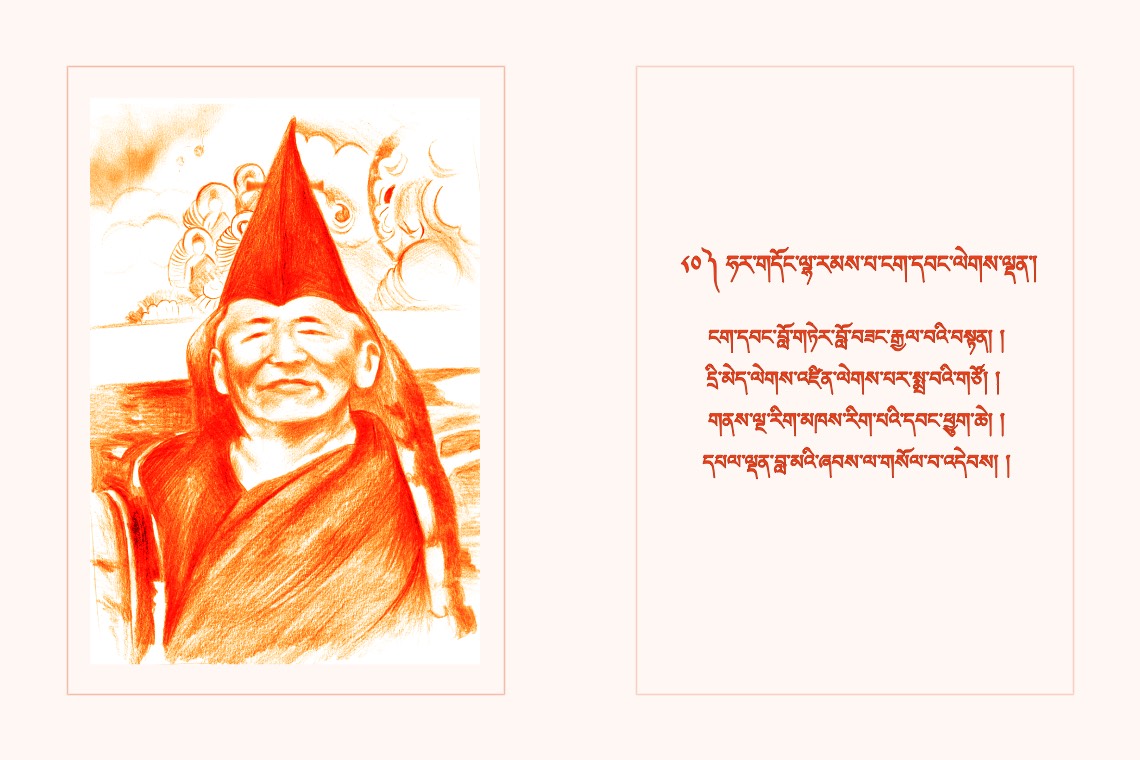 ༩༠ ༽ ཧར་གདོང་ལྷ་རམས་པ་ངག་དབང་ལེགས་ལྡན།
ངག་དབང་བློ་གཏེར་བློ་བཟང་རྒྱལ་བའི་བསྟན། །
དྲི་མེད་ལེགས་འཛིན་ལེགས་པར་སྨྲ་བའི་གཙོ། །
གནས་ལྔ་རིག་མཁས་རིག་པའི་དབང་ཕྱུག་ཆེ། །
དཔལ་ལྡན་བླ་མའི་ཞབས་ལ་གསོལ་བ་འདེབས། །